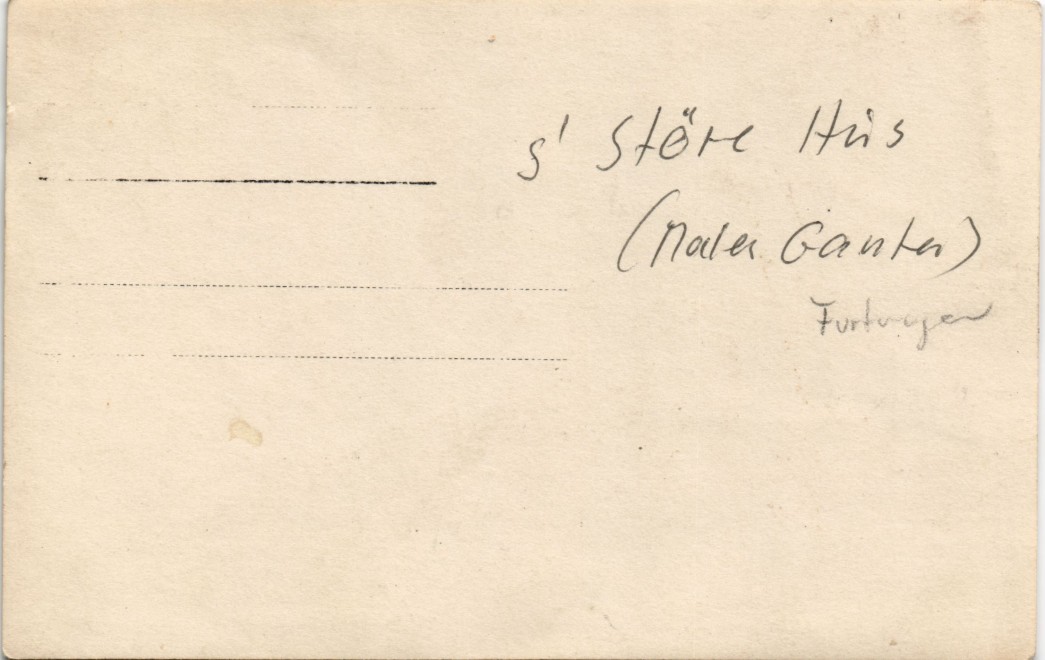 s' Störe Hüs
(Maler Ganter)
Furtwangen